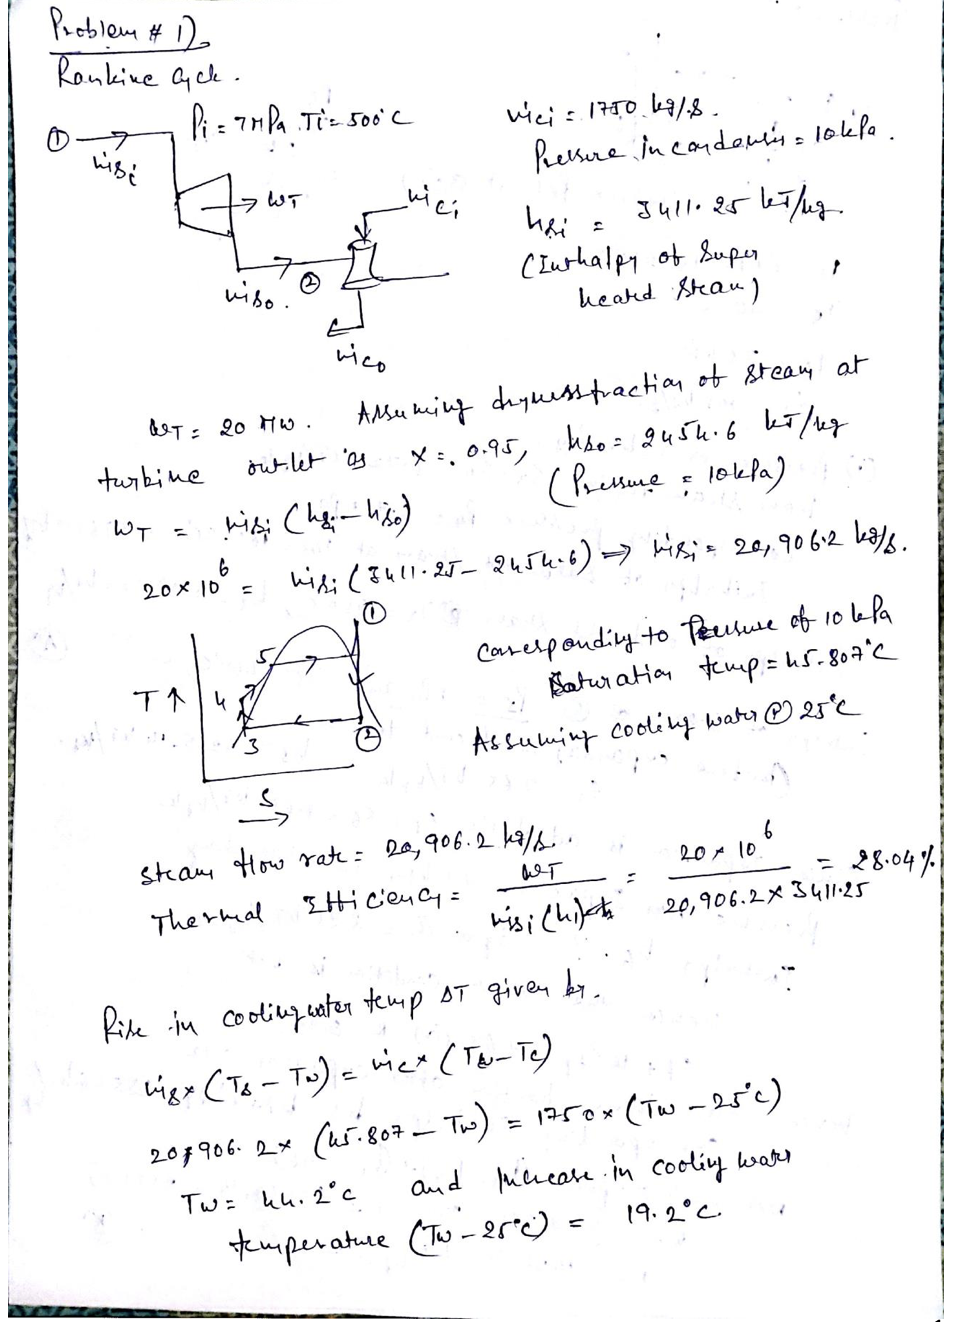 Problem # 1)
Rankine Cycle.
① ṁsi
Pi = 7 MPa Ti = 500°C
ṁci = 1750 kg/s.
Pressure in condensis = 10 kPa.
WT
ṁci
ṁso. ②
ṁco
hsi = 3411.25 kJ/kg.
(Enthalpy of Super
heated steam)
WT = 20 MW. Assuming drynessfraction of steam at
turbine outlet as x = 0.95, hso = 2454.6 kJ/kg
(Pressure = 10kPa)
WT = ṁsi (hsi - hso)
20 × 10^6 = ṁsi (3411.25 - 2454.6) ⇒ ṁsi = 20,906.2 kg/s.
①
5
T ↑
4
3
②
S
→
Corresponding to Pressure of 10 kPa
Saturation temp = 45.807°C
Assuming cooling water @ 25°C
Steam flow rate = 20,906.2 kg/s.
Thermal Efficiency = WT / ṁsi (hi) = 20 × 10^6 / 20,906.2 × 3411.25 = 28.04%
Rise in coolingwater temp ΔT given by.
ṁs × (Ts - Tw) = ṁc × (Tw - Tc)
20,906.2 × (45.807 - Tw) = 1750 × (Tw - 25°C)
Tw = 44.2°C and Increase in cooling water
temperature (Tw - 25°C) = 19.2°C.